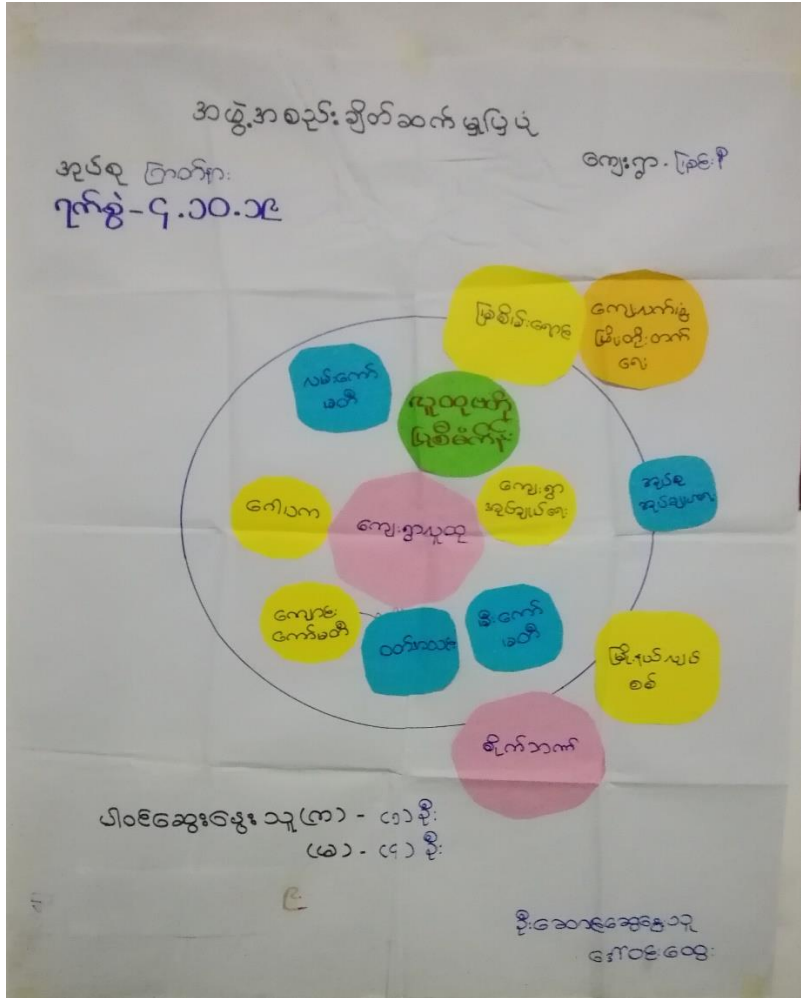 အဖွဲ့အစည်းချိတ်ဆက်မှုပြပုံ
အုပ်စု ကြာတ်ရား
ကျေးရွာ -
ရက်စွဲ - ၄.၁၀.၁၉
မြစိမ်းရောင်
ကျေးလက်ဖွံ့
ဖြိုးတိုးတက်
ရေး
လမ်းကော်
မတီ
လူထုဗဟို
ပြုစီမံကိန်း
ဂေါပက
ကျေးရွာလူထု
ကျေးရွာ
အုပ်ချုပ်ရေး
အုပ်စု
အုပ်ချုပ်ရေး
ကျောင်း
ကော်မတီ
ဝတ်အသင်း
မီးကော်
မတီ
မြို့နယ်လျှပ်
စစ်
စိုက်ဘဏ်
ပါဝင်ဆွေးနွေးသူ (ကျာ) - (၁) ဦး
(မ) - (၄) ဦး
ဦးဆောင်ဆွေးနွေးသူ
ဒေါ်ဝင်းထွေး